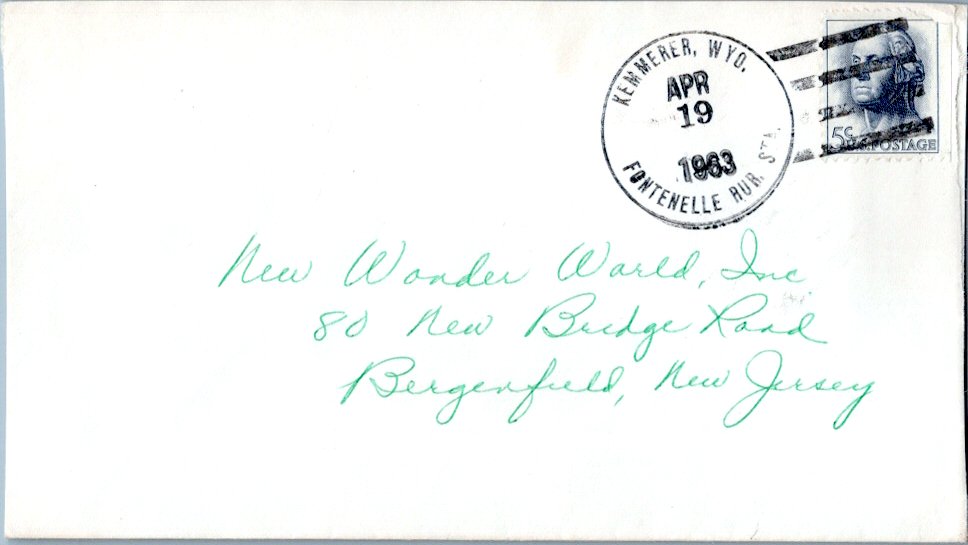 KEMMERER, WYO.
APR
19
1963
FONTENELLE RUR. STA.
5c
U.S. POSTAGE
New Wonder World, Inc
80 New Bridge Road
Bergenfield, New Jersey